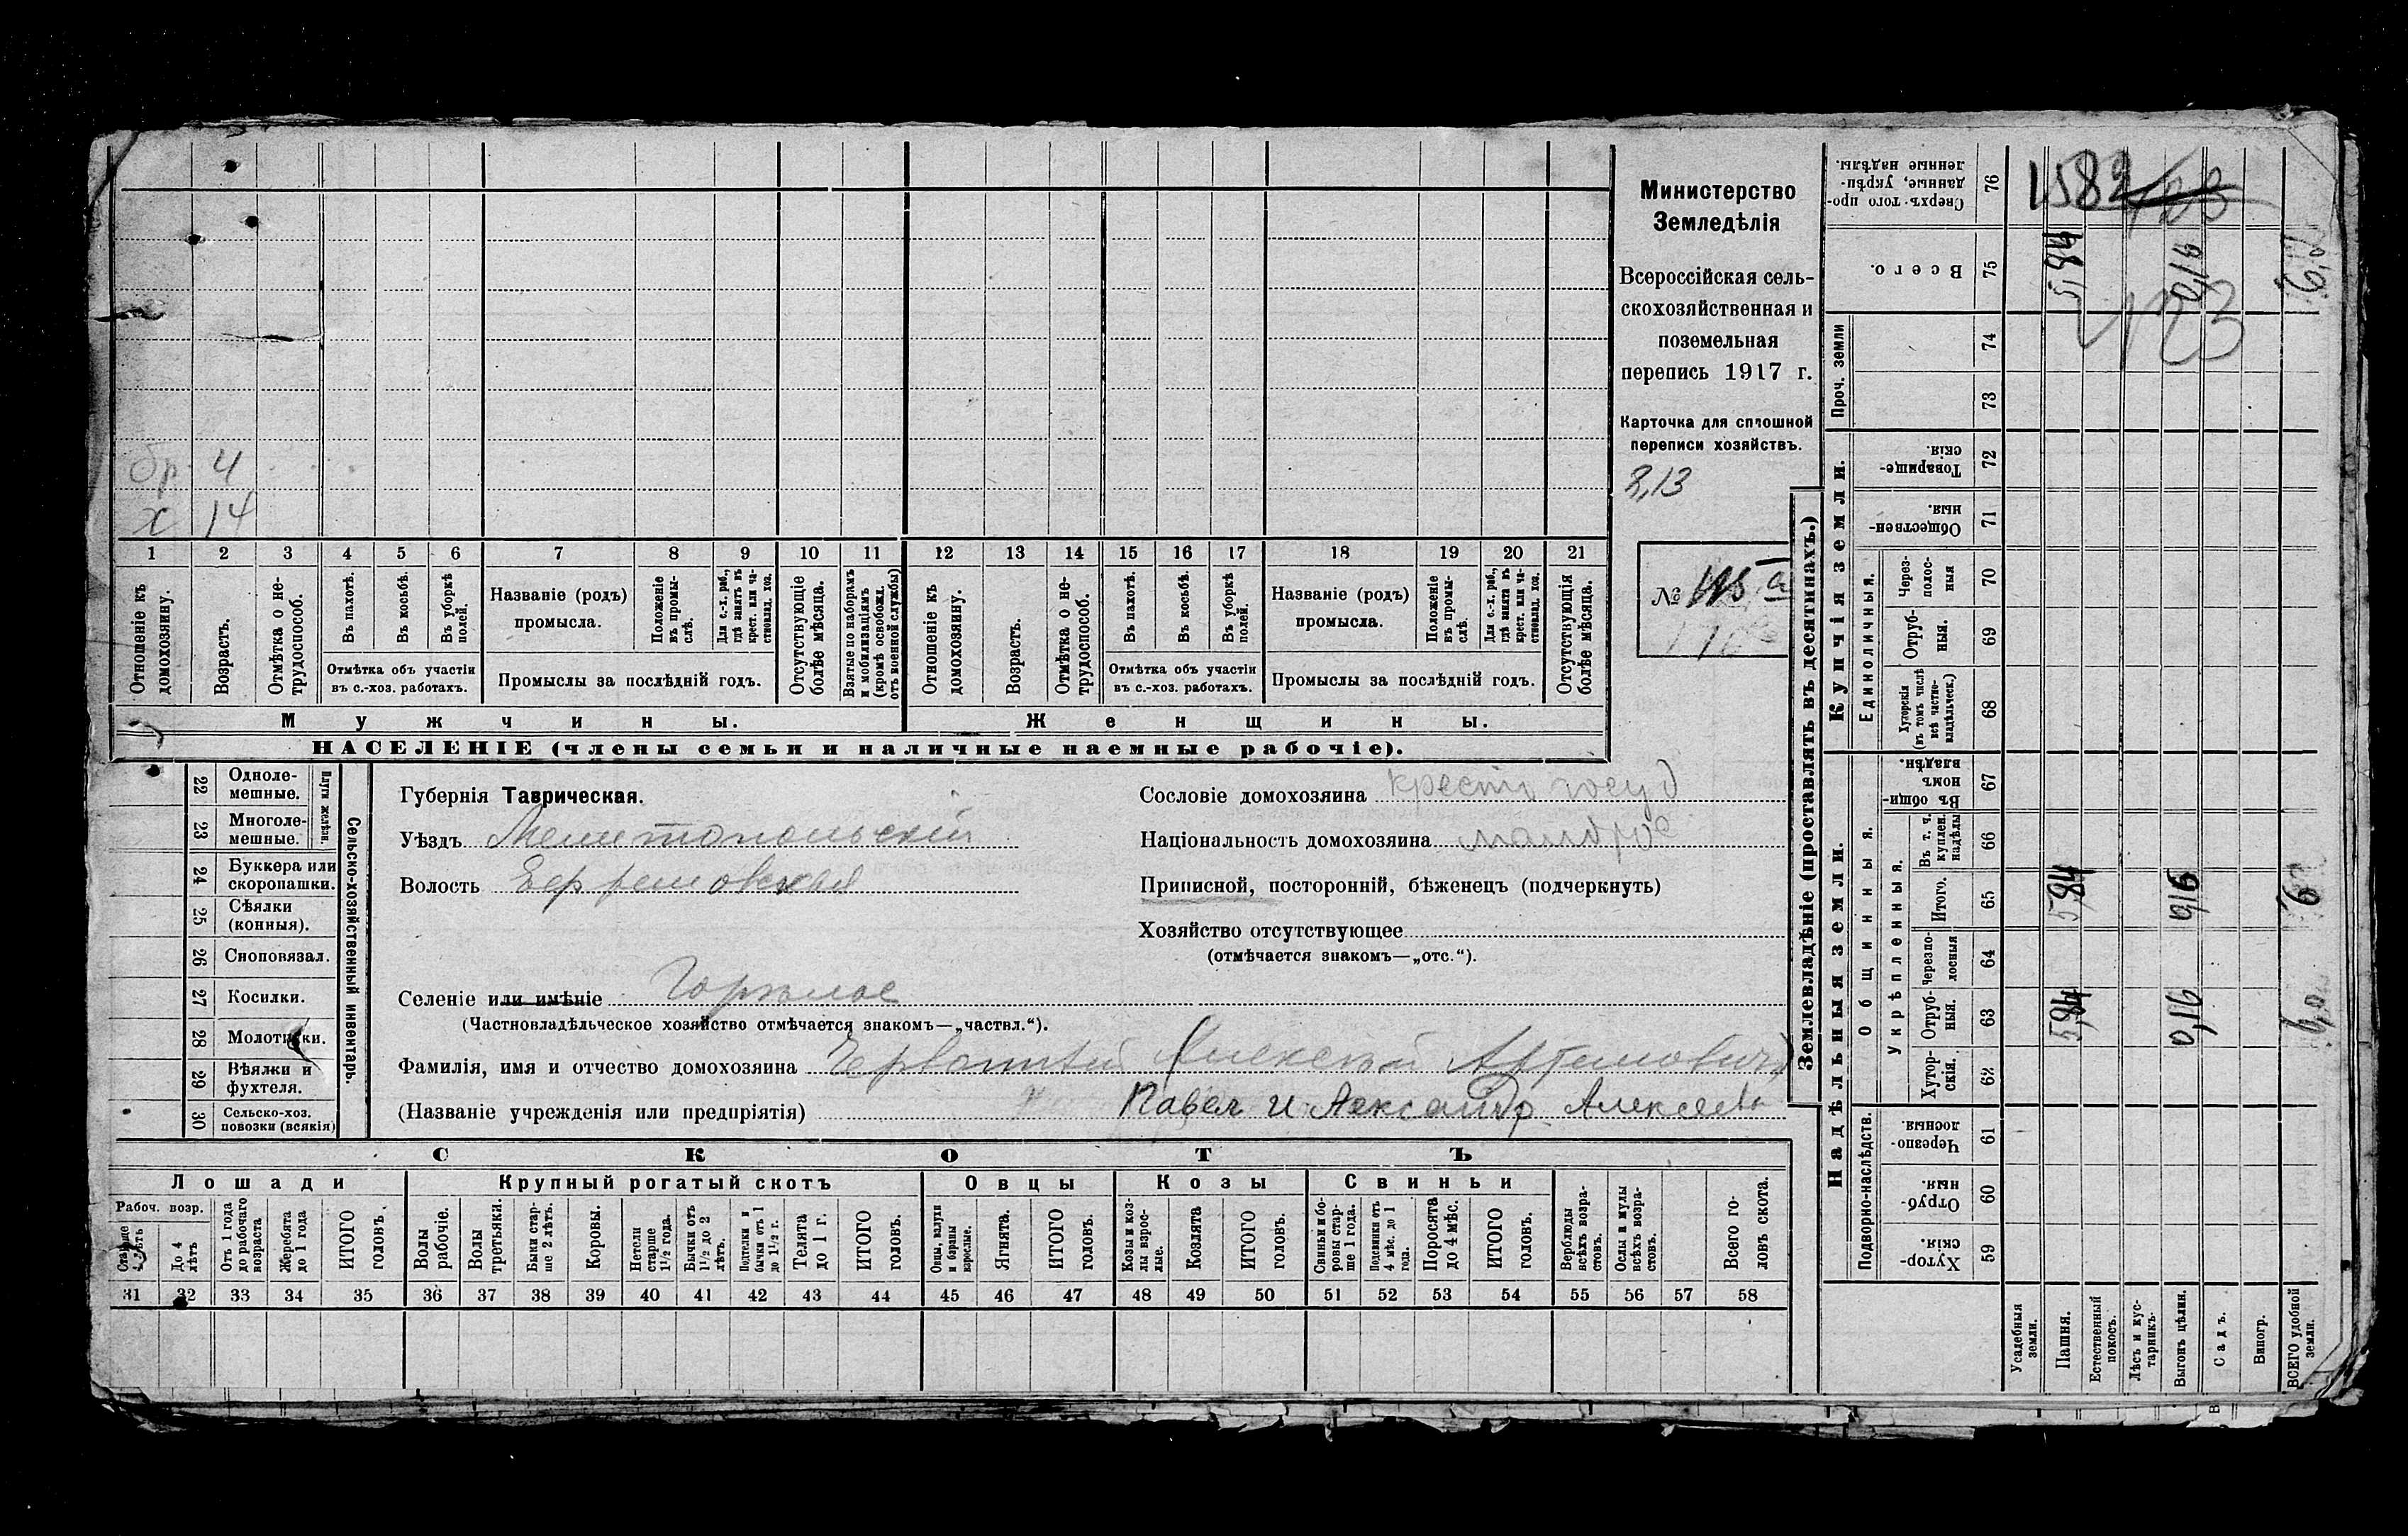 Министерство
Земледѣлія
Всероссійская сель-
скохозяйственная и
поземельная
перепись 1917 г.
Карточка для сплошной
переписи хозяйствъ.
2,13
№
бр. 4
х 14
1 2 3 4 5 6 7 8 9 10 11 12 13 14 15 16 17 18 19 20 21
Отношеніе къ домохозяину.
Возрастъ.
Отмѣтка о не-трудоспособ.
Въ пахотѣ.
Въ косьбѣ.
Въ уборкѣ полей.
Отмѣтка объ участіи
въ с.-хоз. работахъ.
Названіе (родъ)
промысла.
Положеніе въ промы-слѣ.
Для с.-х. раб., гдѣ занятъ въ крест. или ча-стновлад. хоз.
Промыслы за послѣдній годъ.
Отсутствующіе болѣе мѣсяца.
Взятые по наборамъ и мобилизаціямъ (кромѣ освобожд. отъ военной службы)
Отношеніе къ домохозяину.
Возрастъ.
Отмѣтка о не-трудоспособ.
Въ пахотѣ.
Въ косьбѣ.
Въ уборкѣ полей.
Отмѣтка объ участіи
въ с.-хоз. работахъ.
Названіе (родъ)
промысла.
Положеніе въ промы-слѣ.
Для с.-х. раб., гдѣ занята въ крест. или ча-стновлад. хоз.
Промыслы за послѣдній годъ.
Отсутствующія болѣе мѣсяца.
Мужчины.
Женщины.
НАСЕЛЕНІЕ (члены семьи и наличные наемные рабочіе).
Сельско-хозяйственный инвентарь.
Плуги желѣзн.
22 Одноле-мешные.
23 Многоле-мешные.
24 Буккера или скоропашки.
25 Сѣялки (конныя).
26 Сноповязал.
27 Косилки.
28 Молотилки.
29 Вѣялки и фухтеля.
30 Сельско-хоз. повозки (всякія)
Губернія Таврическая.
Уѣздъ Мелитопольскій
Волость
Селеніе или имѣніе Горѣлое
(Частновладѣльческое хозяйство отмѣчается знакомъ—„частвл.“).
Фамилія, имя и отчество домохозяина Алексѣй Артимовичъ
(Названіе учрежденія или предпріятія) Павел и Александр Алексеев
Сословіе домохозяина крест. госуд
Національность домохозяина малорос
Приписной, посторонній, бѣженецъ (подчеркнуть)
Хозяйство отсутствующее
(отмѣчается знакомъ—„отс.“).
СКОТЪ
Лошади Крупный рогатый скотъ Овцы Козы Свиньи
Рабоч. возр.
Старше 4 лѣтъ
До 4 лѣтъ
Отъ 1 года до рабочаго возраста
Жеребята до 1 года
ИТОГО головъ.
Волы рабочіе.
Волы третьяки.
Быки стар-ше 2 лѣтъ.
Коровы.
Нетели старше 1½ года.
Бычки отъ 1½ до 2 лѣтъ.
Подтелки и бычки отъ 1 до 1½ г.
Телята до 1 г.
ИТОГО головъ.
Овцы, валухи и бараны взрослые.
Ягнята.
ИТОГО головъ.
Козы и коз-лы взрос-лые.
Козлята
ИТОГО головъ.
Свиньи и бо-ровы стар-ше 1 года.
Подсвинки отъ 4 мѣс. до 1 года.
Поросята до 4 мѣс.
ИТОГО головъ.
Верблюды всѣхъ возра-стовъ.
Ослы и мулы всѣхъ возра-стовъ.
Всего го-ловъ скота.
31 32 33 34 35 36 37 38 39 40 41 42 43 44 45 46 47 48 49 50 51 52 53 54 55 56 57 58
Землевладѣніе (проставлять въ десятинахъ.)
Надѣльныя земли.
Купчія земли.
Проч. земли
Подворно-наслѣдств.
Общинныя.
Укрѣпленныя.
Единоличныя.
Сверхъ того про-данные, укрѣп-ленные надѣлы. 76
Всего. 75 5,84 0,16
74
73
Товарище-скія 72
Обществен-ныя. 71
Через-полос-ныя 70
Отруб-ныя. 69
Хуторскія (въ томъ числѣ всѣ частно-владѣльческ.) 68
Въ общи-номъ владѣн. 67
Въ т. ч. куплен. надѣлы 66
Итого. 65 5,84 0,16 6
Черезпо-лосныя 64
Отруб-ныя. 63 5,84 0,16
Хутор-скія. 62
Черезпо-лосныя. 61
Отруб-ныя. 60
Хутор-скія. 59
1582
123
Усадебныя земли.
Пашня.
Естественный покосъ.
Лѣсъ и кус-тарникъ.
Выгонъ цѣлин.
Садъ.
Виногр.
ВСЕГО удобной земли.